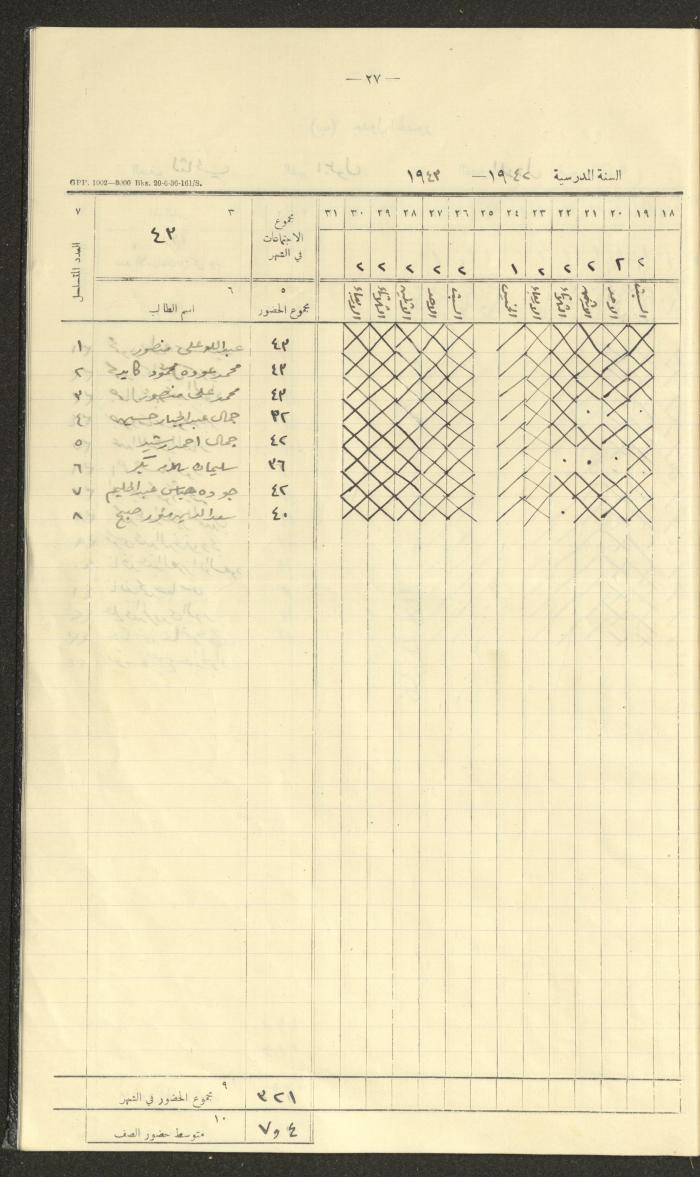 — ٢٧ —
السنة المدرسية ١٩٤٢— ١٩٤٣
GPP. 1002—8000 Bks. 20-6-36-161/S.
١٨ ١٩ ٢٠ ٢١ ٢٢ ٢٣ ٢٤ ٢٥ ٢٦ ٢٧ ٢٨ ٢٩ ٣٠ ٣١
مجموع الاجتماعات في الشهر
٣
٤٣
٧
العدد المتسلسل
٢ ٢ ٢ ٢ ٢ ١ ٢ ٢ ٢ ٢ ٢
السبت الاحد الاثنين الثلاثاء الاربعاء الخميس السبت الاحد الاثنين الثلاثاء الاربعاء
٥
مجموع الحضور
٦
اسم الطالب
٤٣ عبد الله علي منصور ١
٤٣ محمد عوده محمود كايد ٢
٤٣ محمد علي منصور ٣
٣٢ جمال عبد الجبار ٤
٤٢ جمال احمد رشيد ٥
٣٦ سليمان ٦
٤٢ جوده عبد الحليم ٧
٤٠ سعد الدين صبح ٨
٩
مجموع الحضور في الشهر ٣٢١
١٠
متوسط حضور الصف ٧٫٤